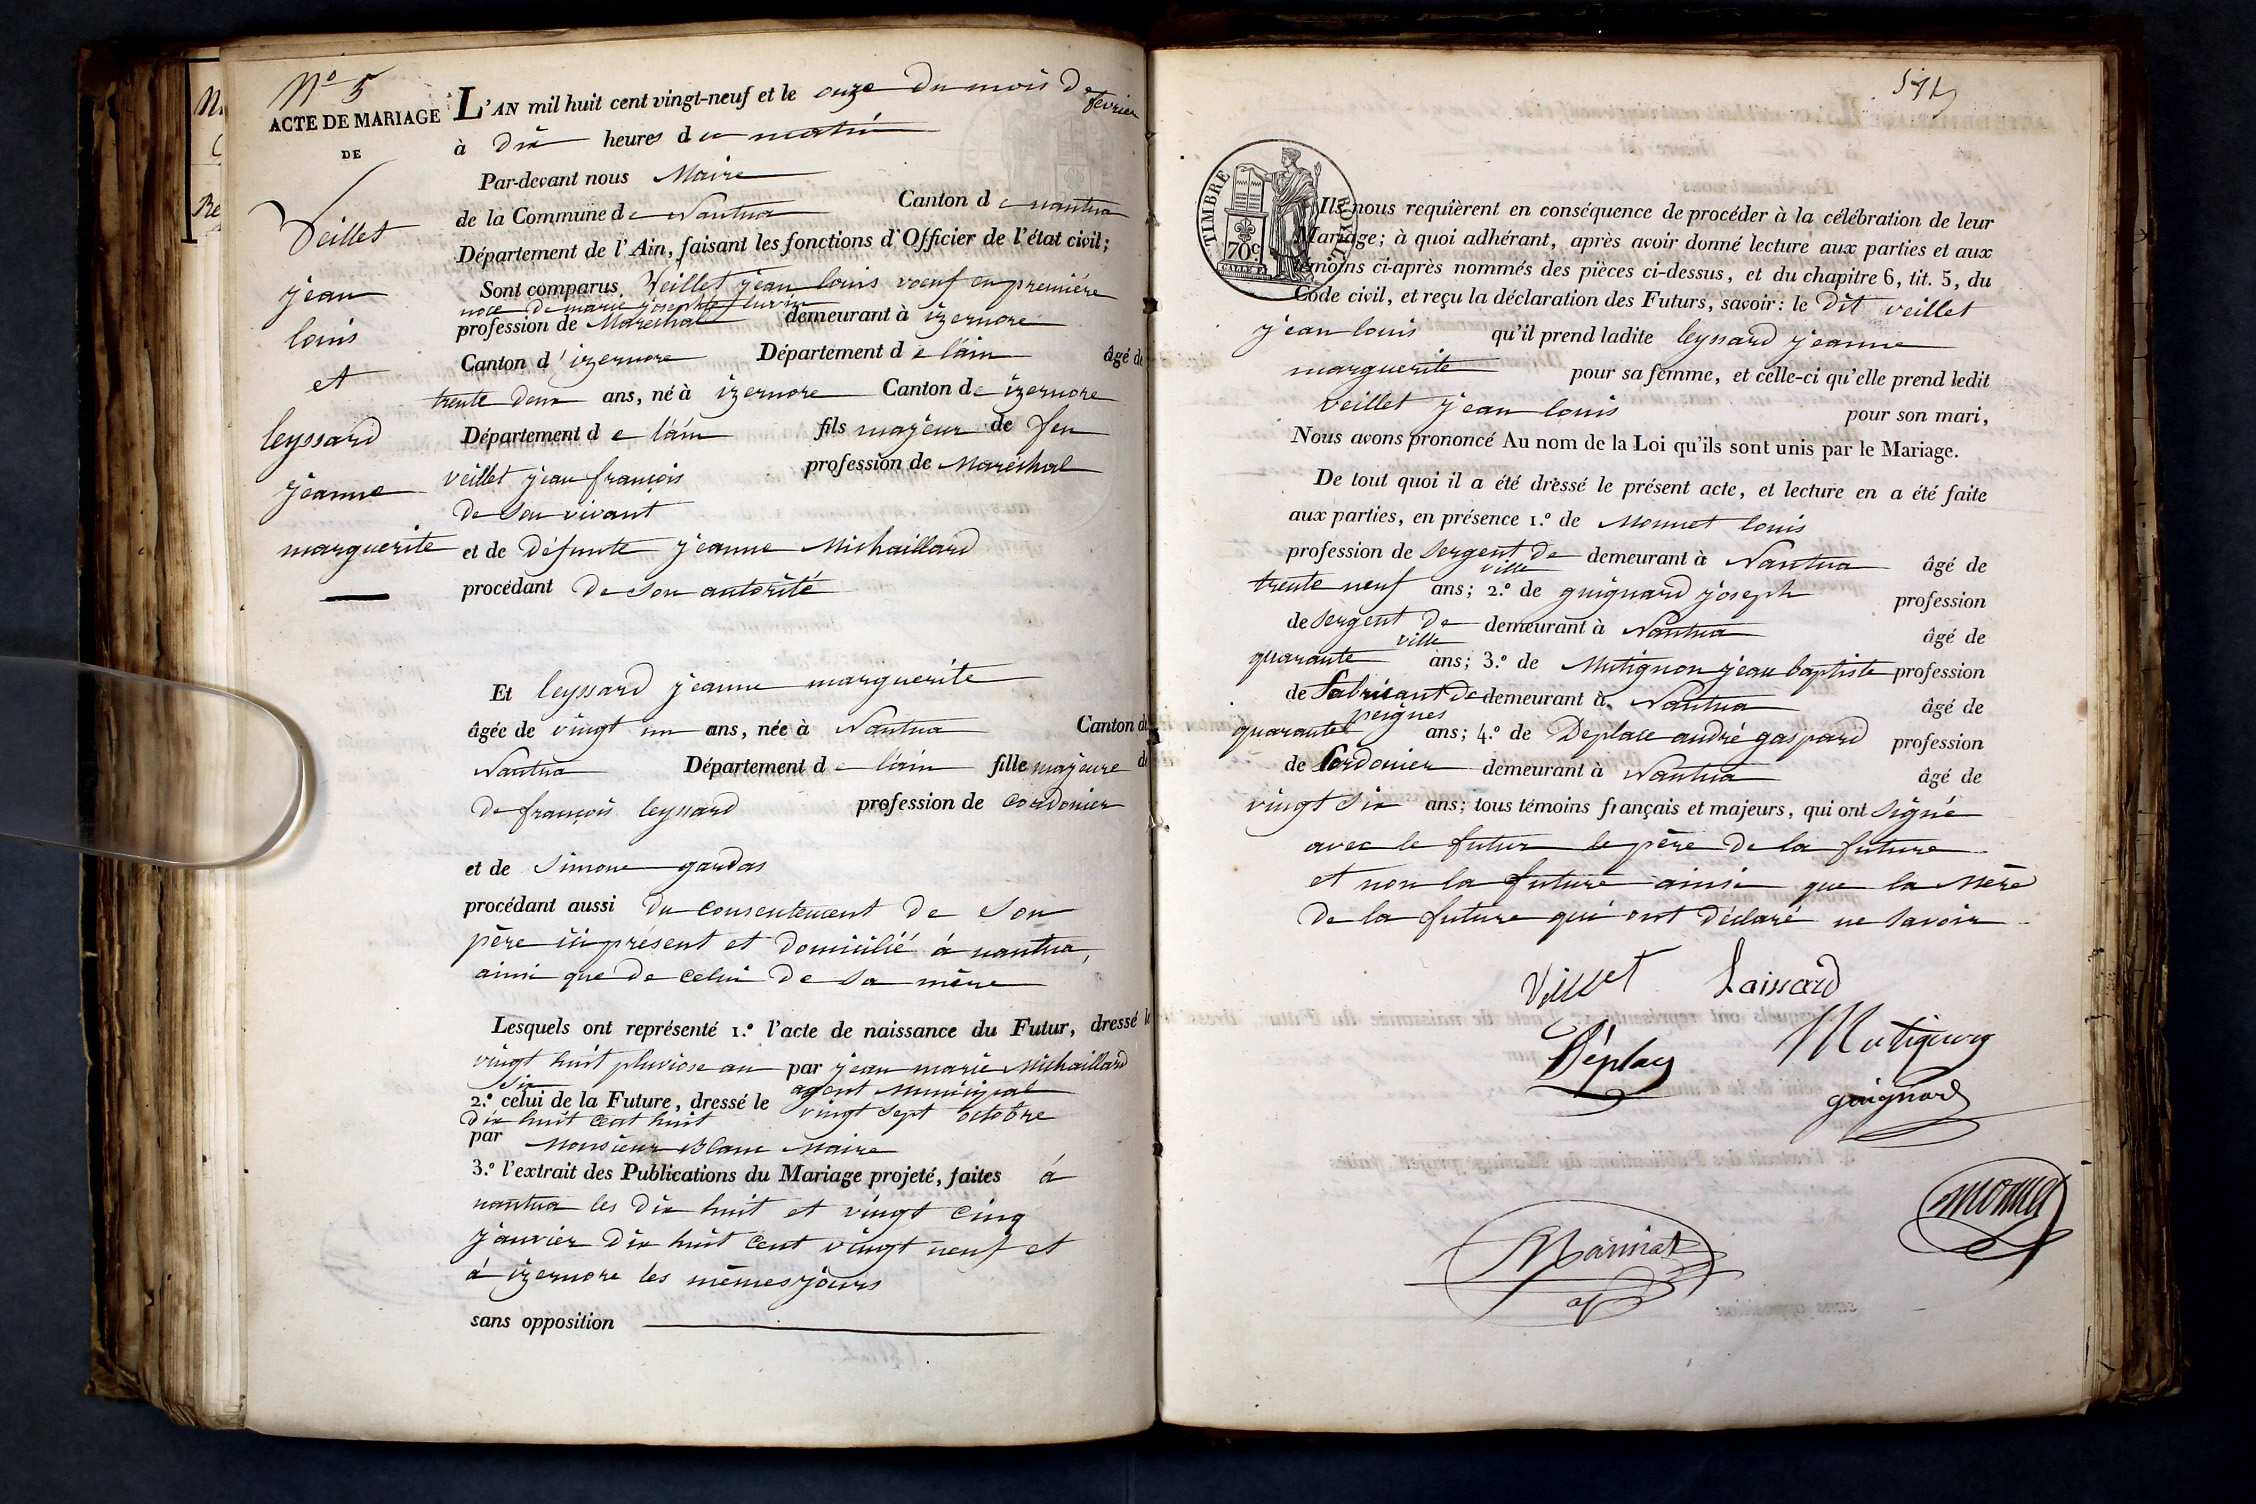 N.º 5
ACTE DE MARIAGE
DE
Veillet
jean
louis
et
leyssard
jeanne
marguerite
L'AN mil huit cent vingt-neuf et le onze du mois de fevrier
à Dix heures du matin
Par-devant nous Maire
de la Commune de Nantua Canton de nantua
Département de l'Ain, faisant les fonctions d'Officier de l'état civil;
Sont comparus Veillet jean louis voeuf en premiére
noce de marie josephte
profession de Maréchal demeurant à izernore
Canton d'izernore Département de l'ain âgé de
trente deux ans, né à izernore Canton de izernore
Département de l'ain fils majeur de feu
veillet jean françois profession de Maréchal
de son vivant
et de Défunte jeanne Michaillard
procédant de son autorité
Et leyssard jeanne marguerite
âgée de vingt un ans, née à Nantua Canton de
Nantua Département de l'ain fille majeure de
de françois leyssard profession de cordonier
et de Simone gardas
procédant aussi du consentement de son
père ici présent et domicilié à nantua,
ainsi que de celui de sa mère
Lesquels ont représenté 1.º l'acte de naissance du Futur, dressé le
vingt huit pluviose an six par jean marie Michaillard
agent municipal
2.º celui de la Future, dressé le vingt sept octobre
dix huit cent huit
par Monsieur Blanc Maire
3.º l'extrait des Publications du Mariage projeté, faites à
nantua les dix huit et vingt cinq
janvier dix huit cent vingt neuf et
à izernore les mêmes jours
sans opposition
TIMBRE ROYAL
70c
Ils nous requièrent en conséquence de procéder à la célébration de leur
Mariage; à quoi adhérant, après avoir donné lecture aux parties et aux
témoins ci-après nommés des pièces ci-dessus, et du chapitre 6, tit. 5, du
Code civil, et reçu la déclaration des Futurs, savoir: le dit veillet
jean louis qu'il prend ladite leyssard jeanne
marguerite pour sa femme, et celle-ci qu'elle prend ledit
Veillet jean louis pour son mari,
Nous avons prononcé Au nom de la Loi qu'ils sont unis par le Mariage.
De tout quoi il a été dressé le présent acte, et lecture en a été faite
aux parties, en présence 1.º de Monnet louis
profession de Sergent de ville demeurant à Nantua âgé de
trente neuf ans; 2.º de guignard joseph profession
de Sergent de ville demeurant à Nantua âgé de
quarante ans; 3.º de Mutignon jean baptiste profession
de Fabricant de peignes demeurant à Nantua âgé de
quarante ans; 4.º de Deplace andré gaspard profession
de Cordonier demeurant à Nantua âgé de
vingt six ans; tous témoins français et majeurs, qui ont signé
avec le futur le père de la future
et non la future ainsi que la Mère
de la future qui ont déclaré ne savoir
Veillet Laissard
Déplace Mutignon
guignard
monnet